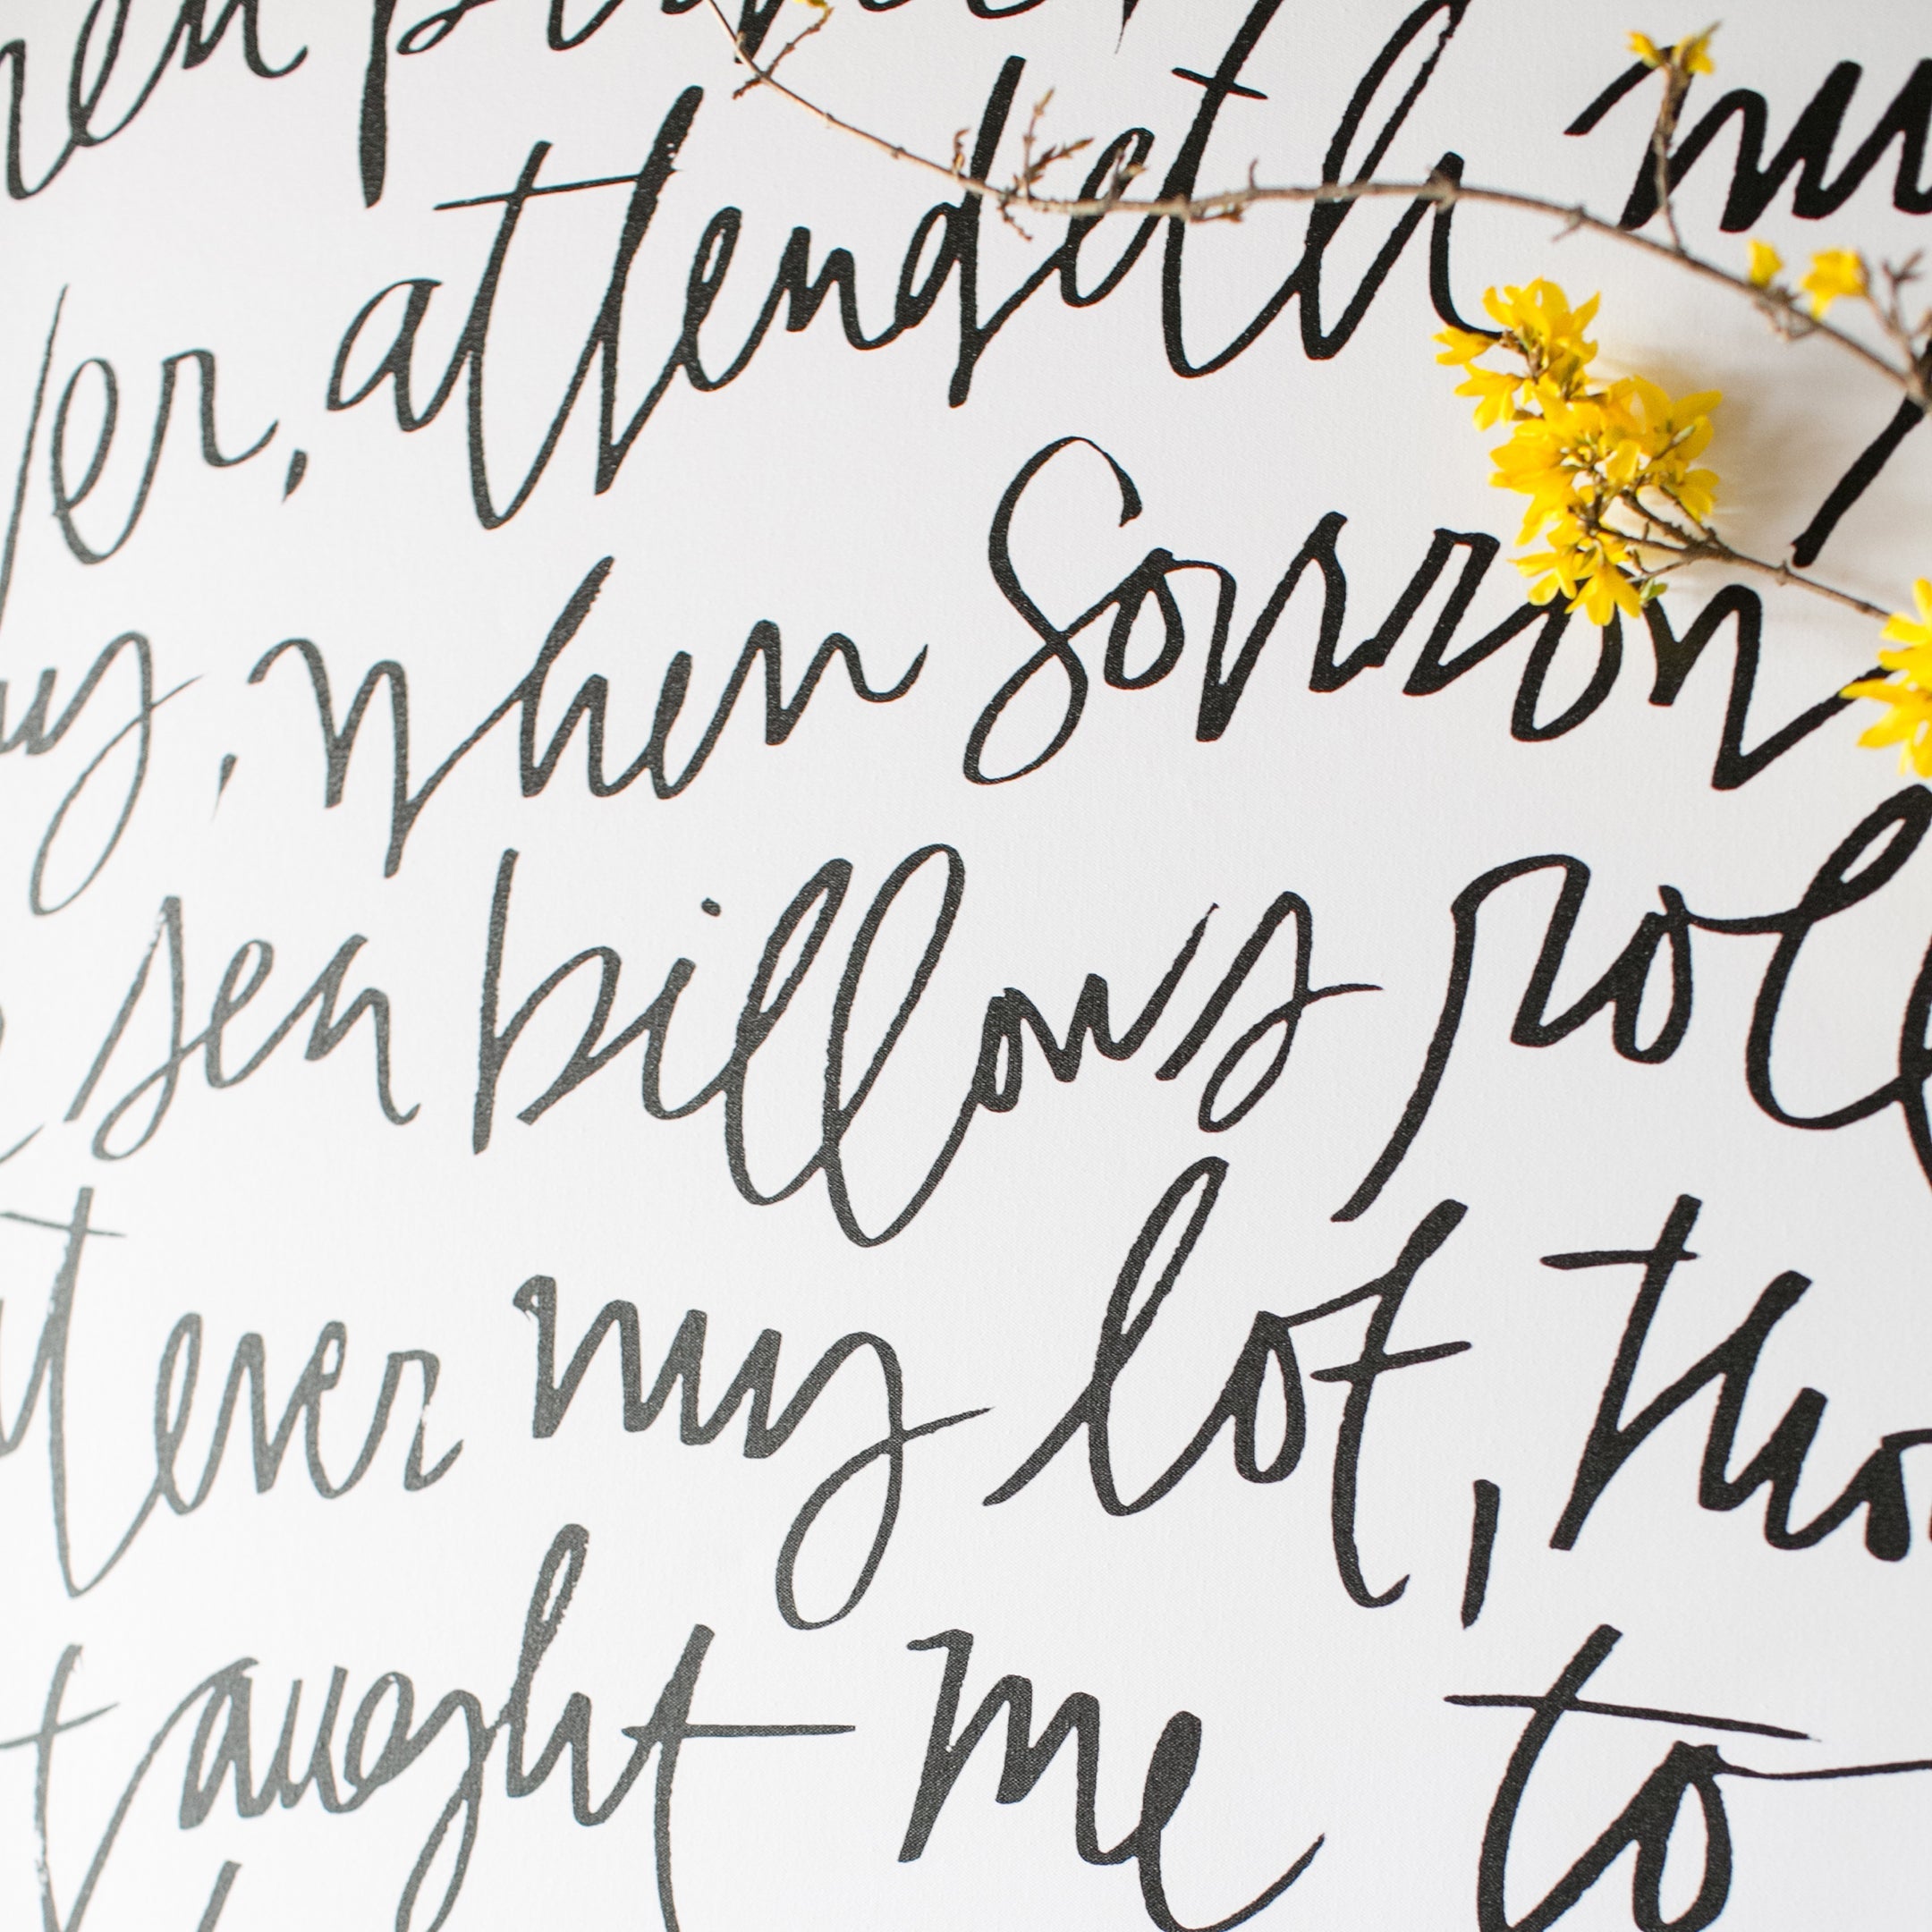 hen peace
er, attendeth my
ay, when Sorrow
sea billows roll
tever my lot, tho
taught me to